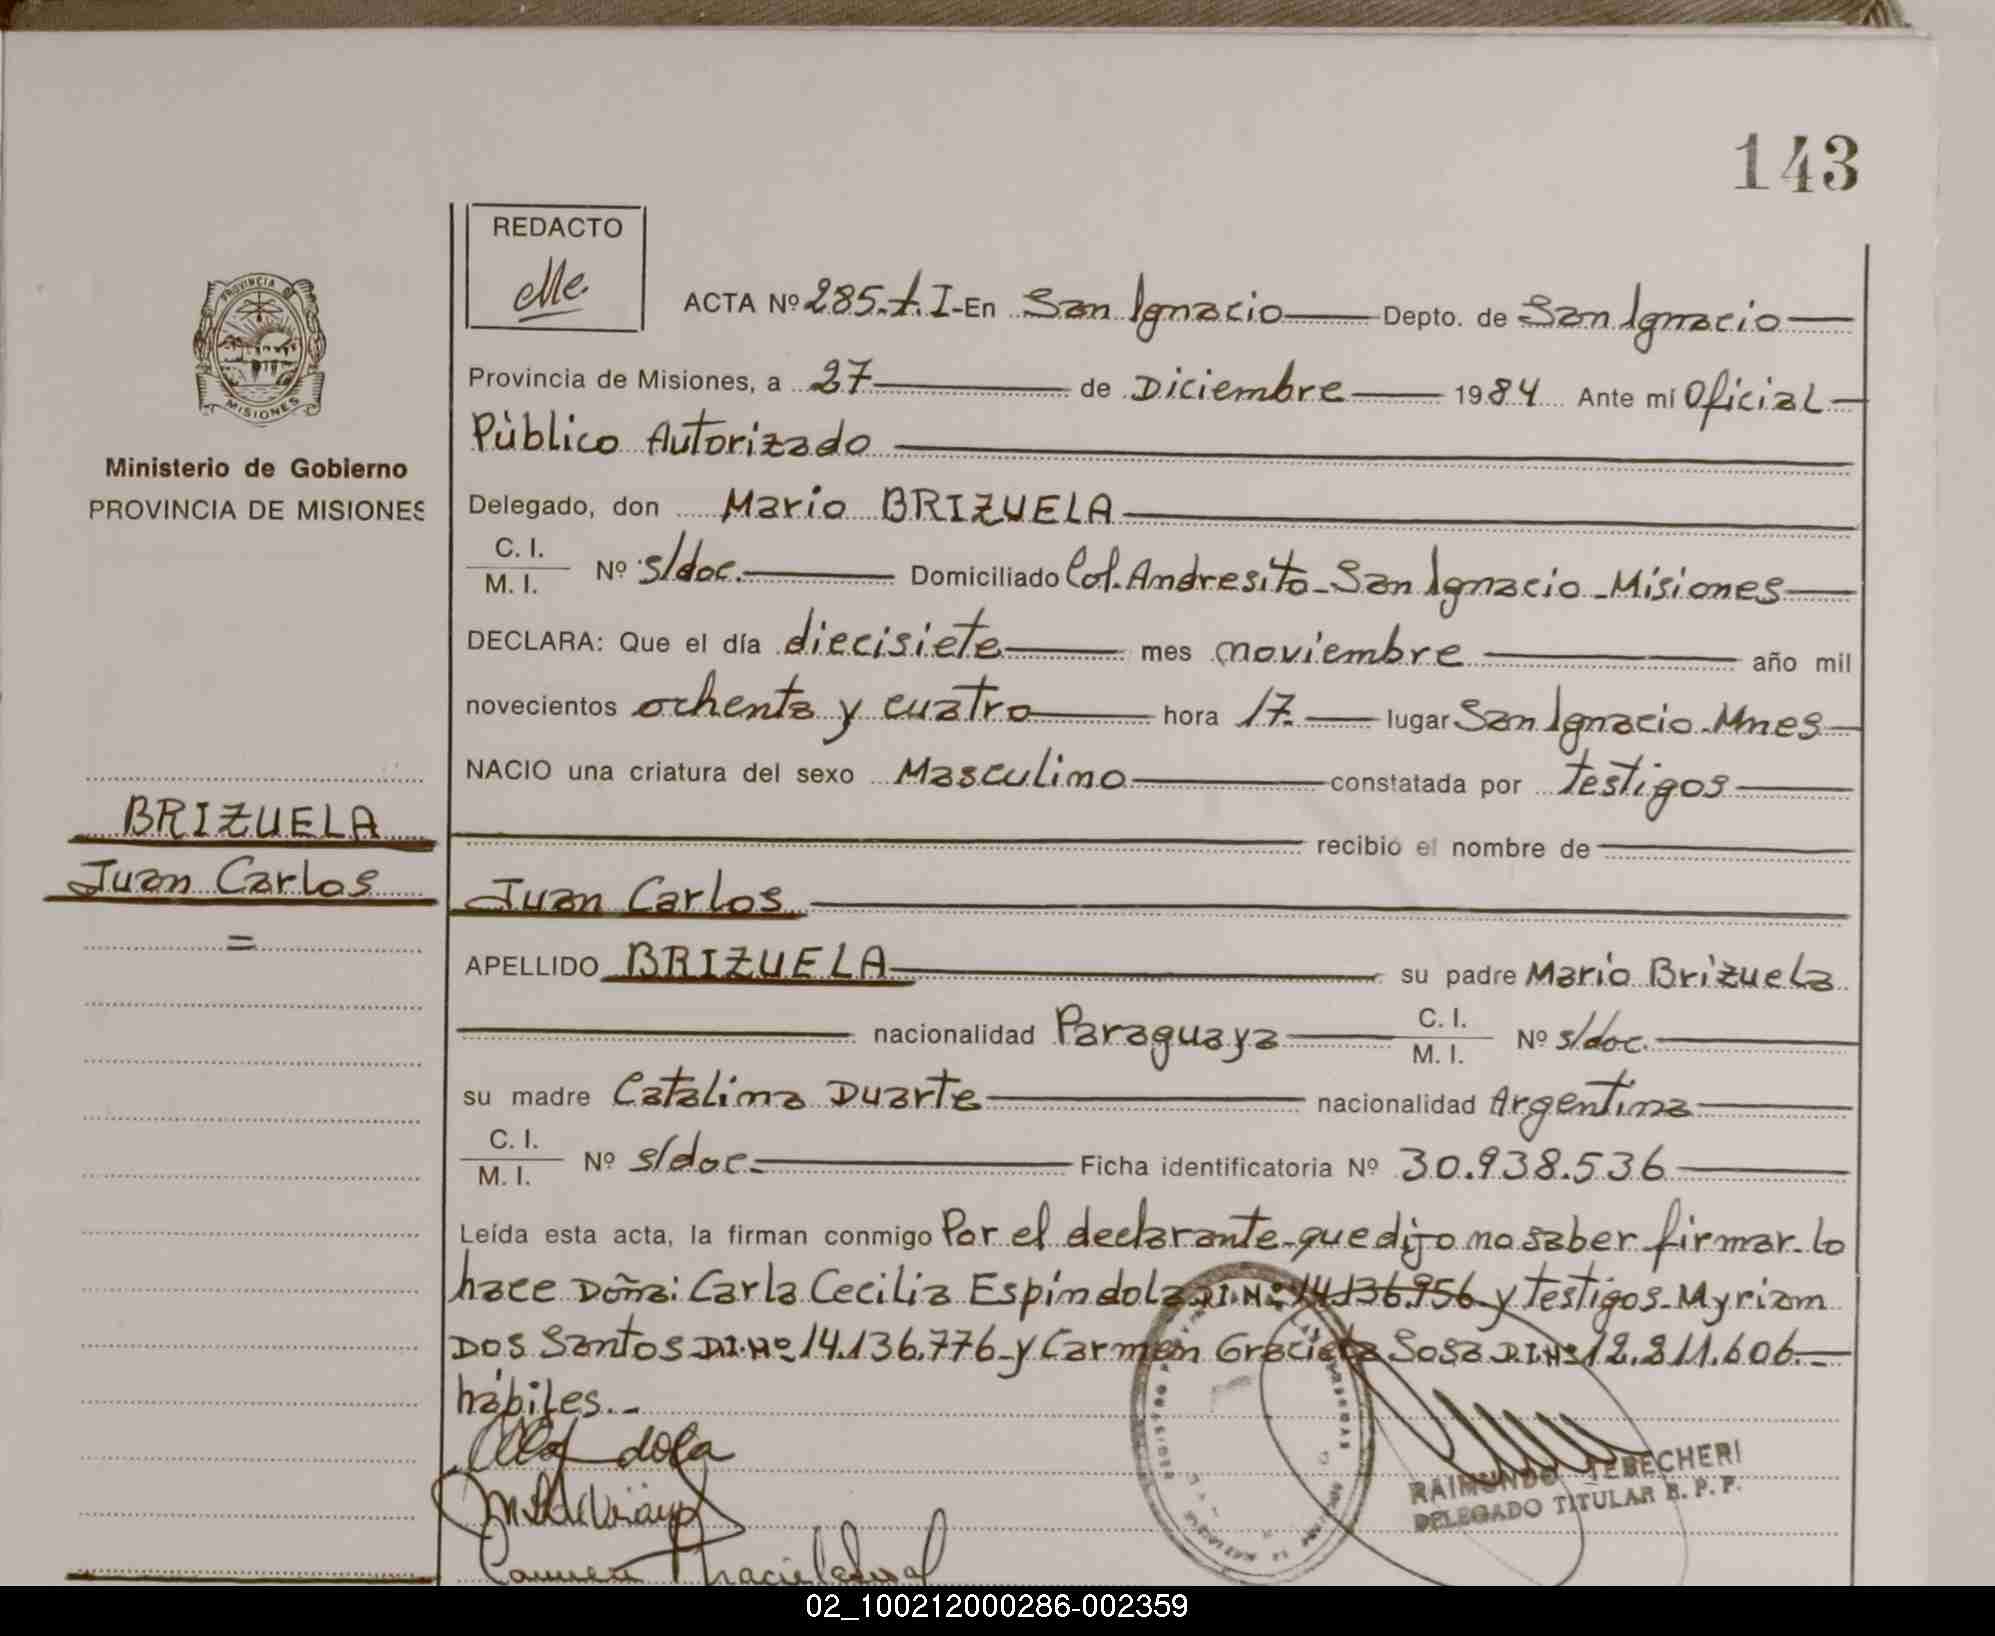 143
REDACTO
ACTA Nº 285.-t.I-En San Ignacio Depto. de San Ignacio
Provincia de Misiones, a 27 de Diciembre 1984 Ante mí Oficial
Público Autorizado
Delegado, don Mario BRIZUELA
C. I.
M. I. Nº s/doc. Domiciliado Col. Andresito-San Ignacio-Misiones
DECLARA: Que el día diecisiete mes noviembre año mil
novecientos ochenta y cuatro hora 17. lugar San Ignacio-Mnes
NACIO una criatura del sexo Masculino constatada por testigos
recibió el nombre de
Juan Carlos
APELLIDO BRIZUELA su padre Mario Brizuela
nacionalidad Paraguaya C. I.
M. I. Nº s/doc.
su madre Catalina Duarte nacionalidad Argentina
C. I.
M. I. Nº s/doc. Ficha identificatoria Nº 30.938.536
Leída esta acta, la firman conmigo Por el declarante-que dijo no saber firmar-lo
hace Doña: Carla Cecilia Espíndola D.I.Nº 14.136.956 y testigos-Myriam
Dos Santos D.I.Nº 14.136.776-y Carmen Graciela Sosa D.I.Nº 12.811.606.-
hábiles.-
PROVINCIA DE
MISIONES
Ministerio de Gobierno
PROVINCIA DE MISIONES
BRIZUELA
Juan Carlos
=
RAIMUNDO TEBECHERI
DELEGADO TITULAR R. P. P.
02_100212000286-002359